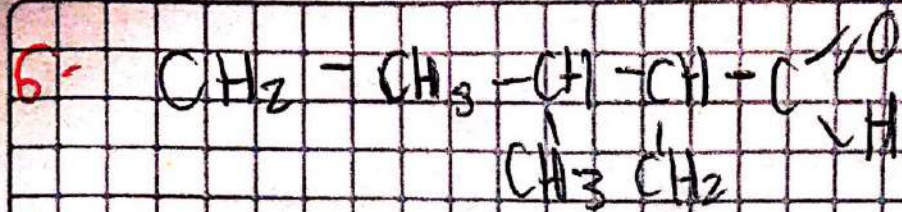 6- CH₂ - CH₃ - CH - CH - C = O
- H
CH₃ CH₂